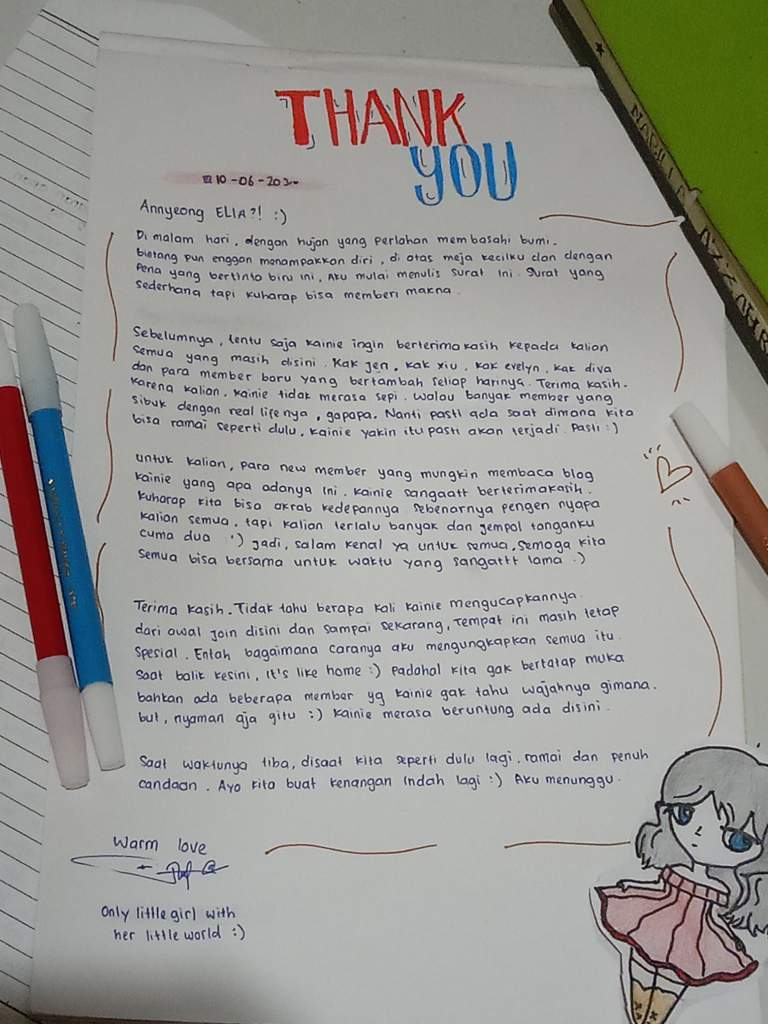 THANK
YOU
10-06-20
Annyeong ELIA?! :)
Di malam hari, dengan hujan yang perlahan membasahi bumi.
bintang pun enggan menampakkan diri, di atas meja kecilku dan dengan
Pena yang bertinta biru ini, Aku mulai menulis surat ini. Surat yang
sederhana tapi kuharap bisa memberi makna.
Sebelumnya, tentu saja kainie ingin berterimakasih kepada kalian
semua yang masih disini. Kak jen, kak xiu, kak evelyn, kak diva
dan para member baru yang bertambah setiap harinya. Terima kasih.
karena kalian, kainie tidak merasa sepi. Walau banyak member yang
sibuk dengan real lifenya, gapapa. Nanti pasti ada saat dimana kita
bisa ramai seperti dulu, kainie yakin itu pasti akan terjadi. Pasti :)
untuk kalian, para new member yang mungkin membaca blog
kainie yang apa adanya ini. kainie sangaatt berterimakasih.
kuharap kita bisa akrab kedepannya. Sebenarnya pengen nyapa
kalian semua, tapi kalian terlalu banyak dan jempol tanganku
cuma dua :') jadi, salam kenal ya untuk semua, Semoga kita
semua bisa bersama untuk waktu yang sangattt lama :)
Terima kasih. Tidak tahu berapa kali kainie mengucapkannya.
dari awal join disini dan sampai sekarang, tempat ini masih tetap
spesial. Entah bagaimana caranya aku mengungkapkan semua itu.
saat balik kesini, it's like home :) padahal kita gak bertatap muka
bahkan ada beberapa member yg kainie gak tahu wajahnya gimana.
but, nyaman aja gitu :) kainie merasa beruntung ada disini.
Saat waktunya tiba, disaat kita seperti dulu lagi, ramai dan penuh
candaan. Ayo kita buat kenangan indah lagi :) Aku menunggu.
Warm love
Only little girl with
her little world :)